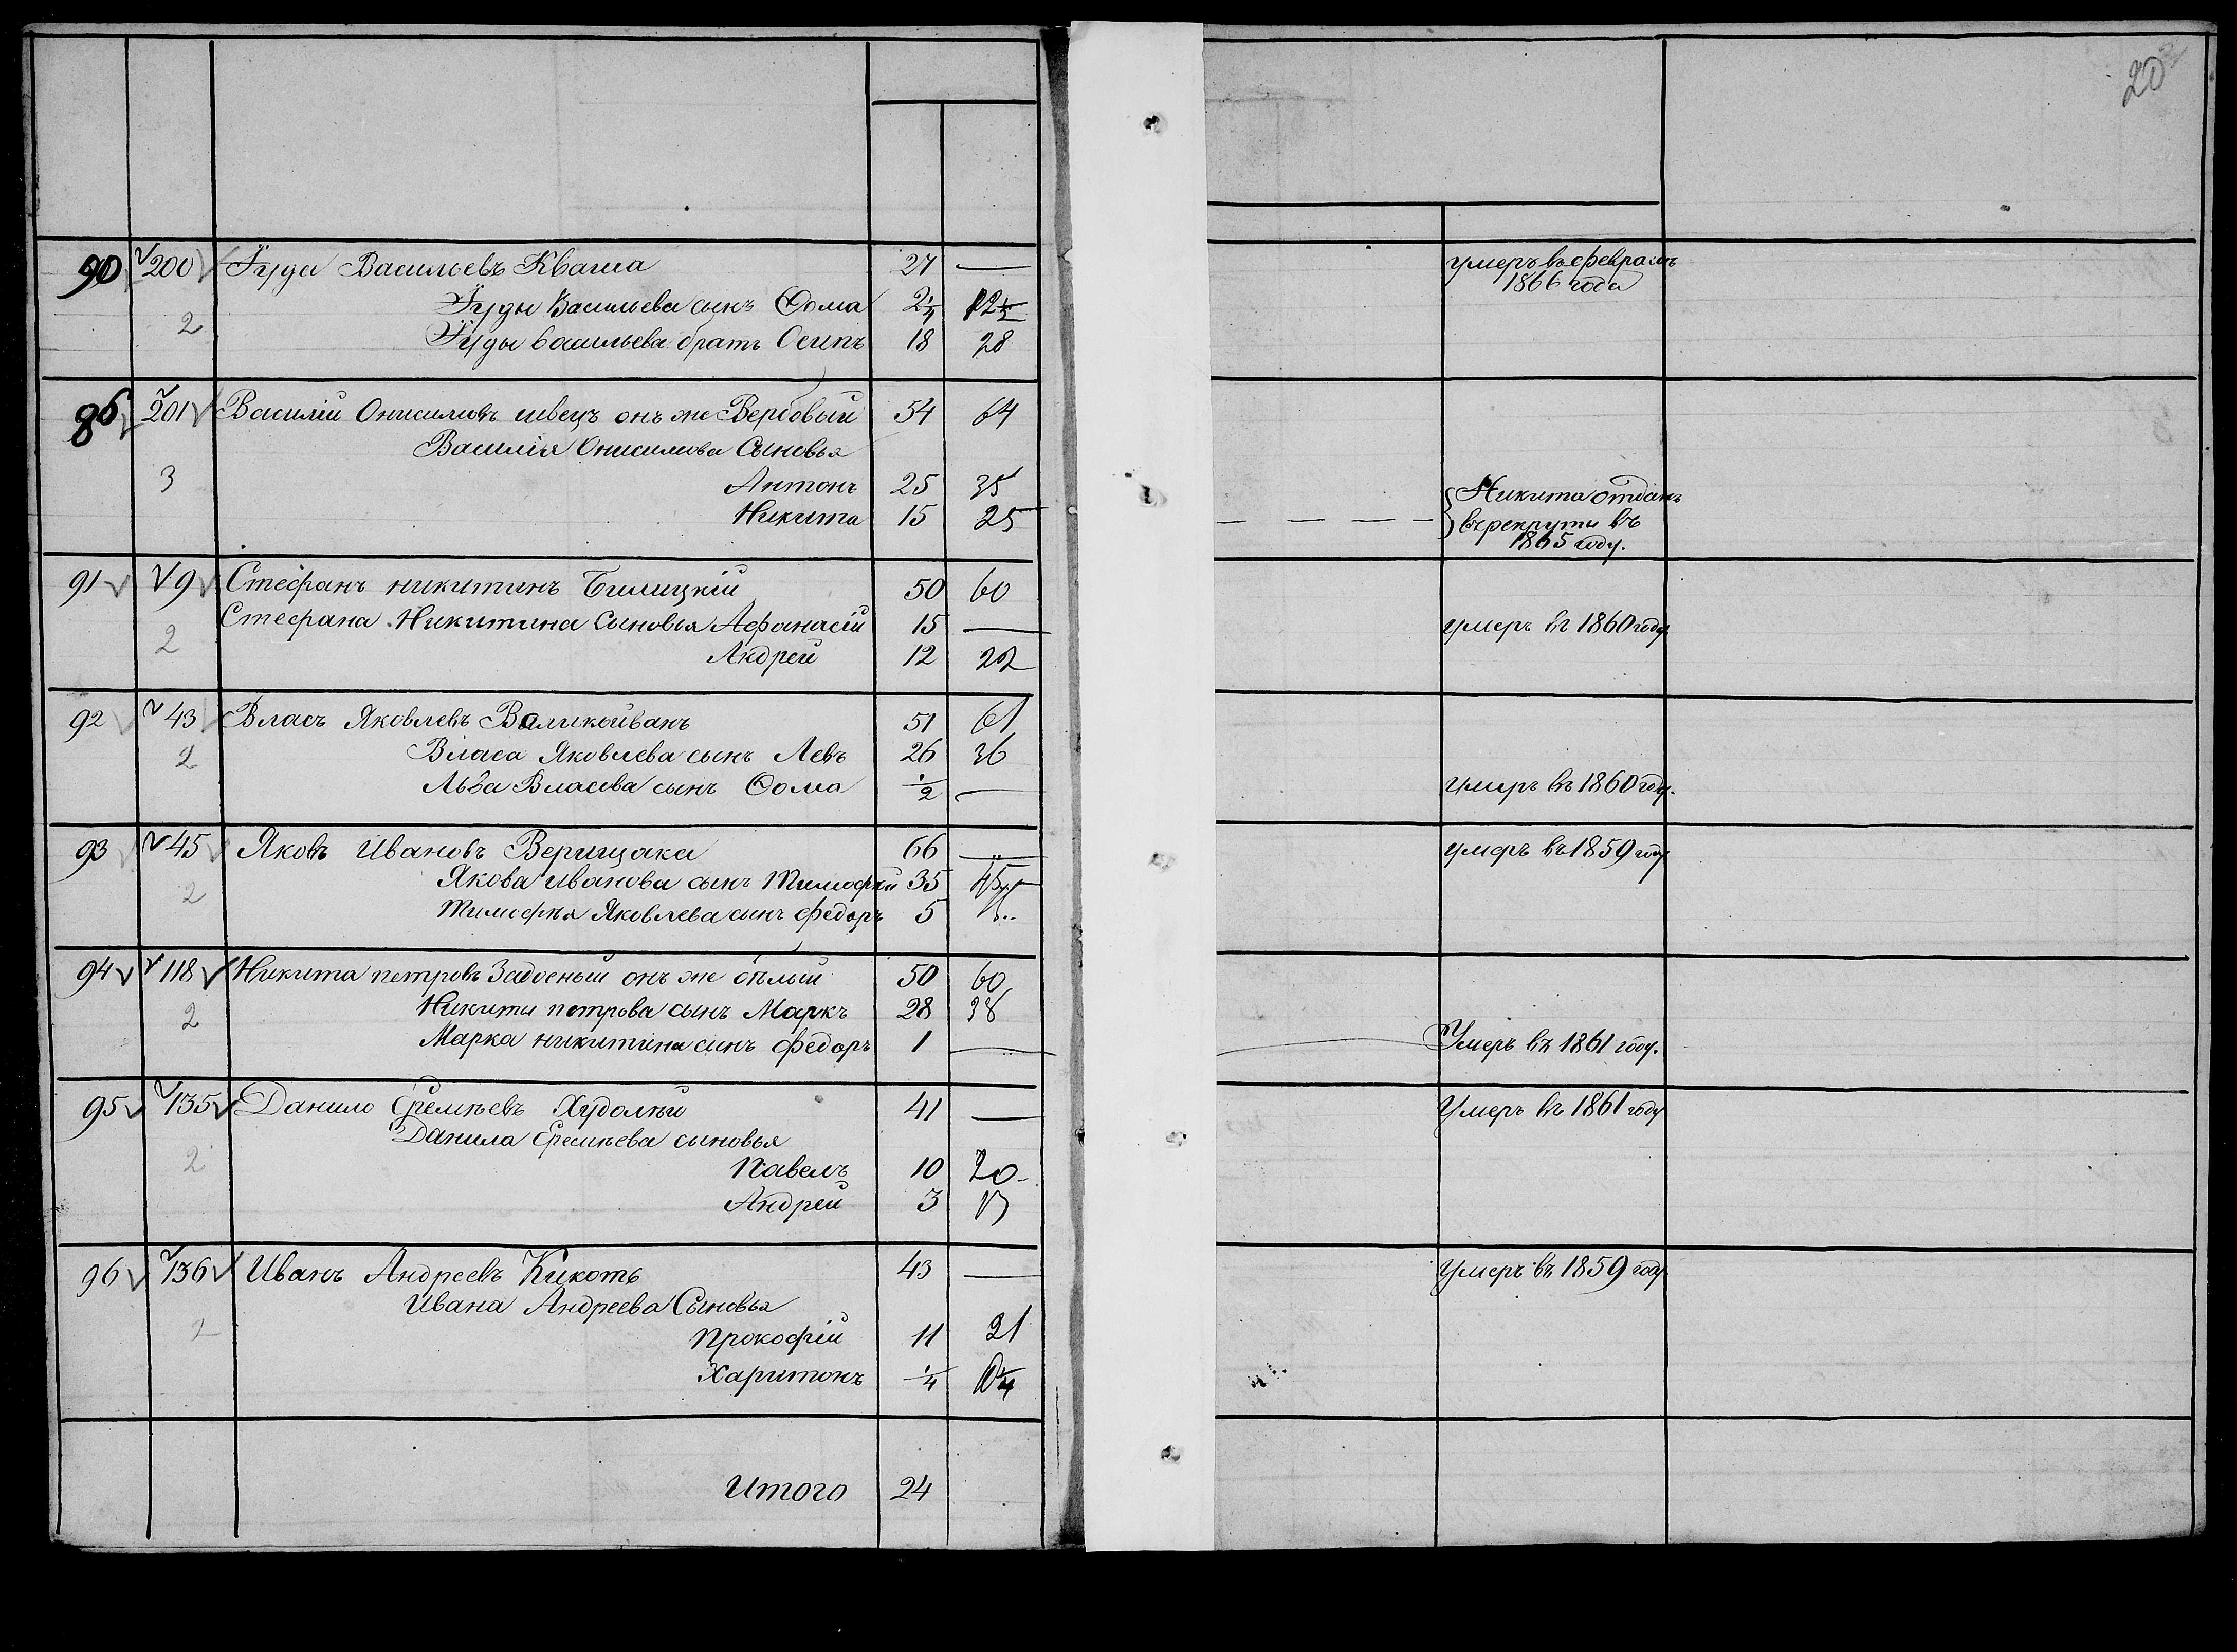 20
90 200 Іуда Васильевъ Кваша 27 — умеръ въ февралѣ
1866 года
Іуды Васильева сынъ Ѳома 2¼ 12½
2 Іуды Васильева братъ Осипъ 18 28
86 201 Василій Онисимовъ швецъ онъ же Вербовый 54 64
Василія Онисимова Сыновья
3 Антонъ 25 35 Никита отданъ
Никита 15 25 въ рекрути въ
1865 году.
91 9 Стефанъ никитинъ Билицкій 50 60
2 Стефана Никитина Сыновья Афанасій 15 — умеръ въ 1860 году
Андрей 12 22
92 43 Власъ Яковлевъ Валикоиванъ 51 61
2 Власа Яковлева сынъ Левъ 26 36
Льва Власова сынъ Ѳома ½ — умеръ въ 1860 году.
93 45 Яковъ Ивановъ Верищака 66 — умеръ въ 1859 году
2 Якова Иванова сынъ Тимофѣй 35 45
Тимофѣя Яковлева сынъ федоръ 5
94 118 Никита петровъ онъ же бѣлый 50 60
2 Никиты петрова сынъ Маркъ 28 38
Марка никитина синъ федоръ 1 — Умеръ въ 1861 году.
95 135 Данило Еремѣевъ Худолѣй 41 — Умеръ въ 1861 году
Данила Еремѣева сыновья
2 Павелъ 10 20
Андрей 3 13
96 136 Иванъ Андреевъ Кикоть 43 — Умеръ въ 1859 году
Ивана Андреева Сыновья
2 Прокофій 11 21
Харитонъ ¼ 10¼
Итого 24